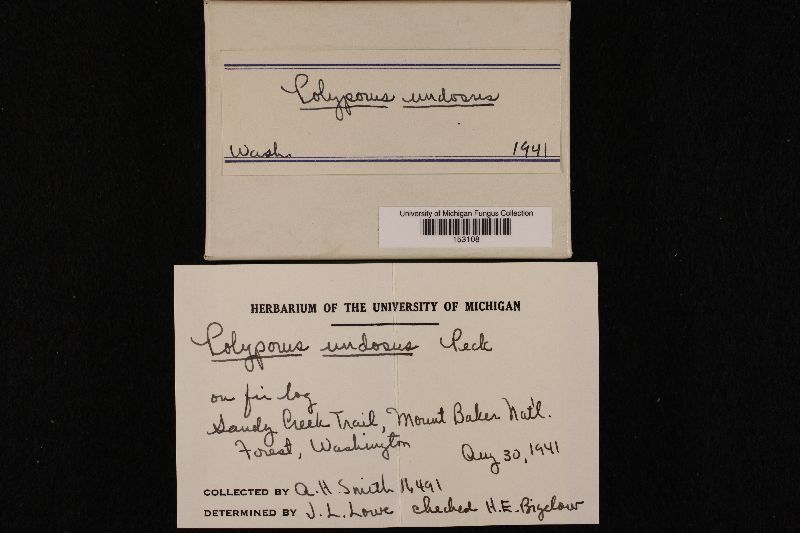 Polyporus undosus
Wash. 1941
University of Michigan Fungus Collection
153108
HERBARIUM OF THE UNIVERSITY OF MICHIGAN
Polyporus undosus Peck
on fir log
Sandy Creek Trail, Mount Baker Nat'l.
Forest, Washington Aug 30, 1941
COLLECTED BY A.H. Smith 16491
DETERMINED BY J.L. Lowe checked H.E. Bigelow